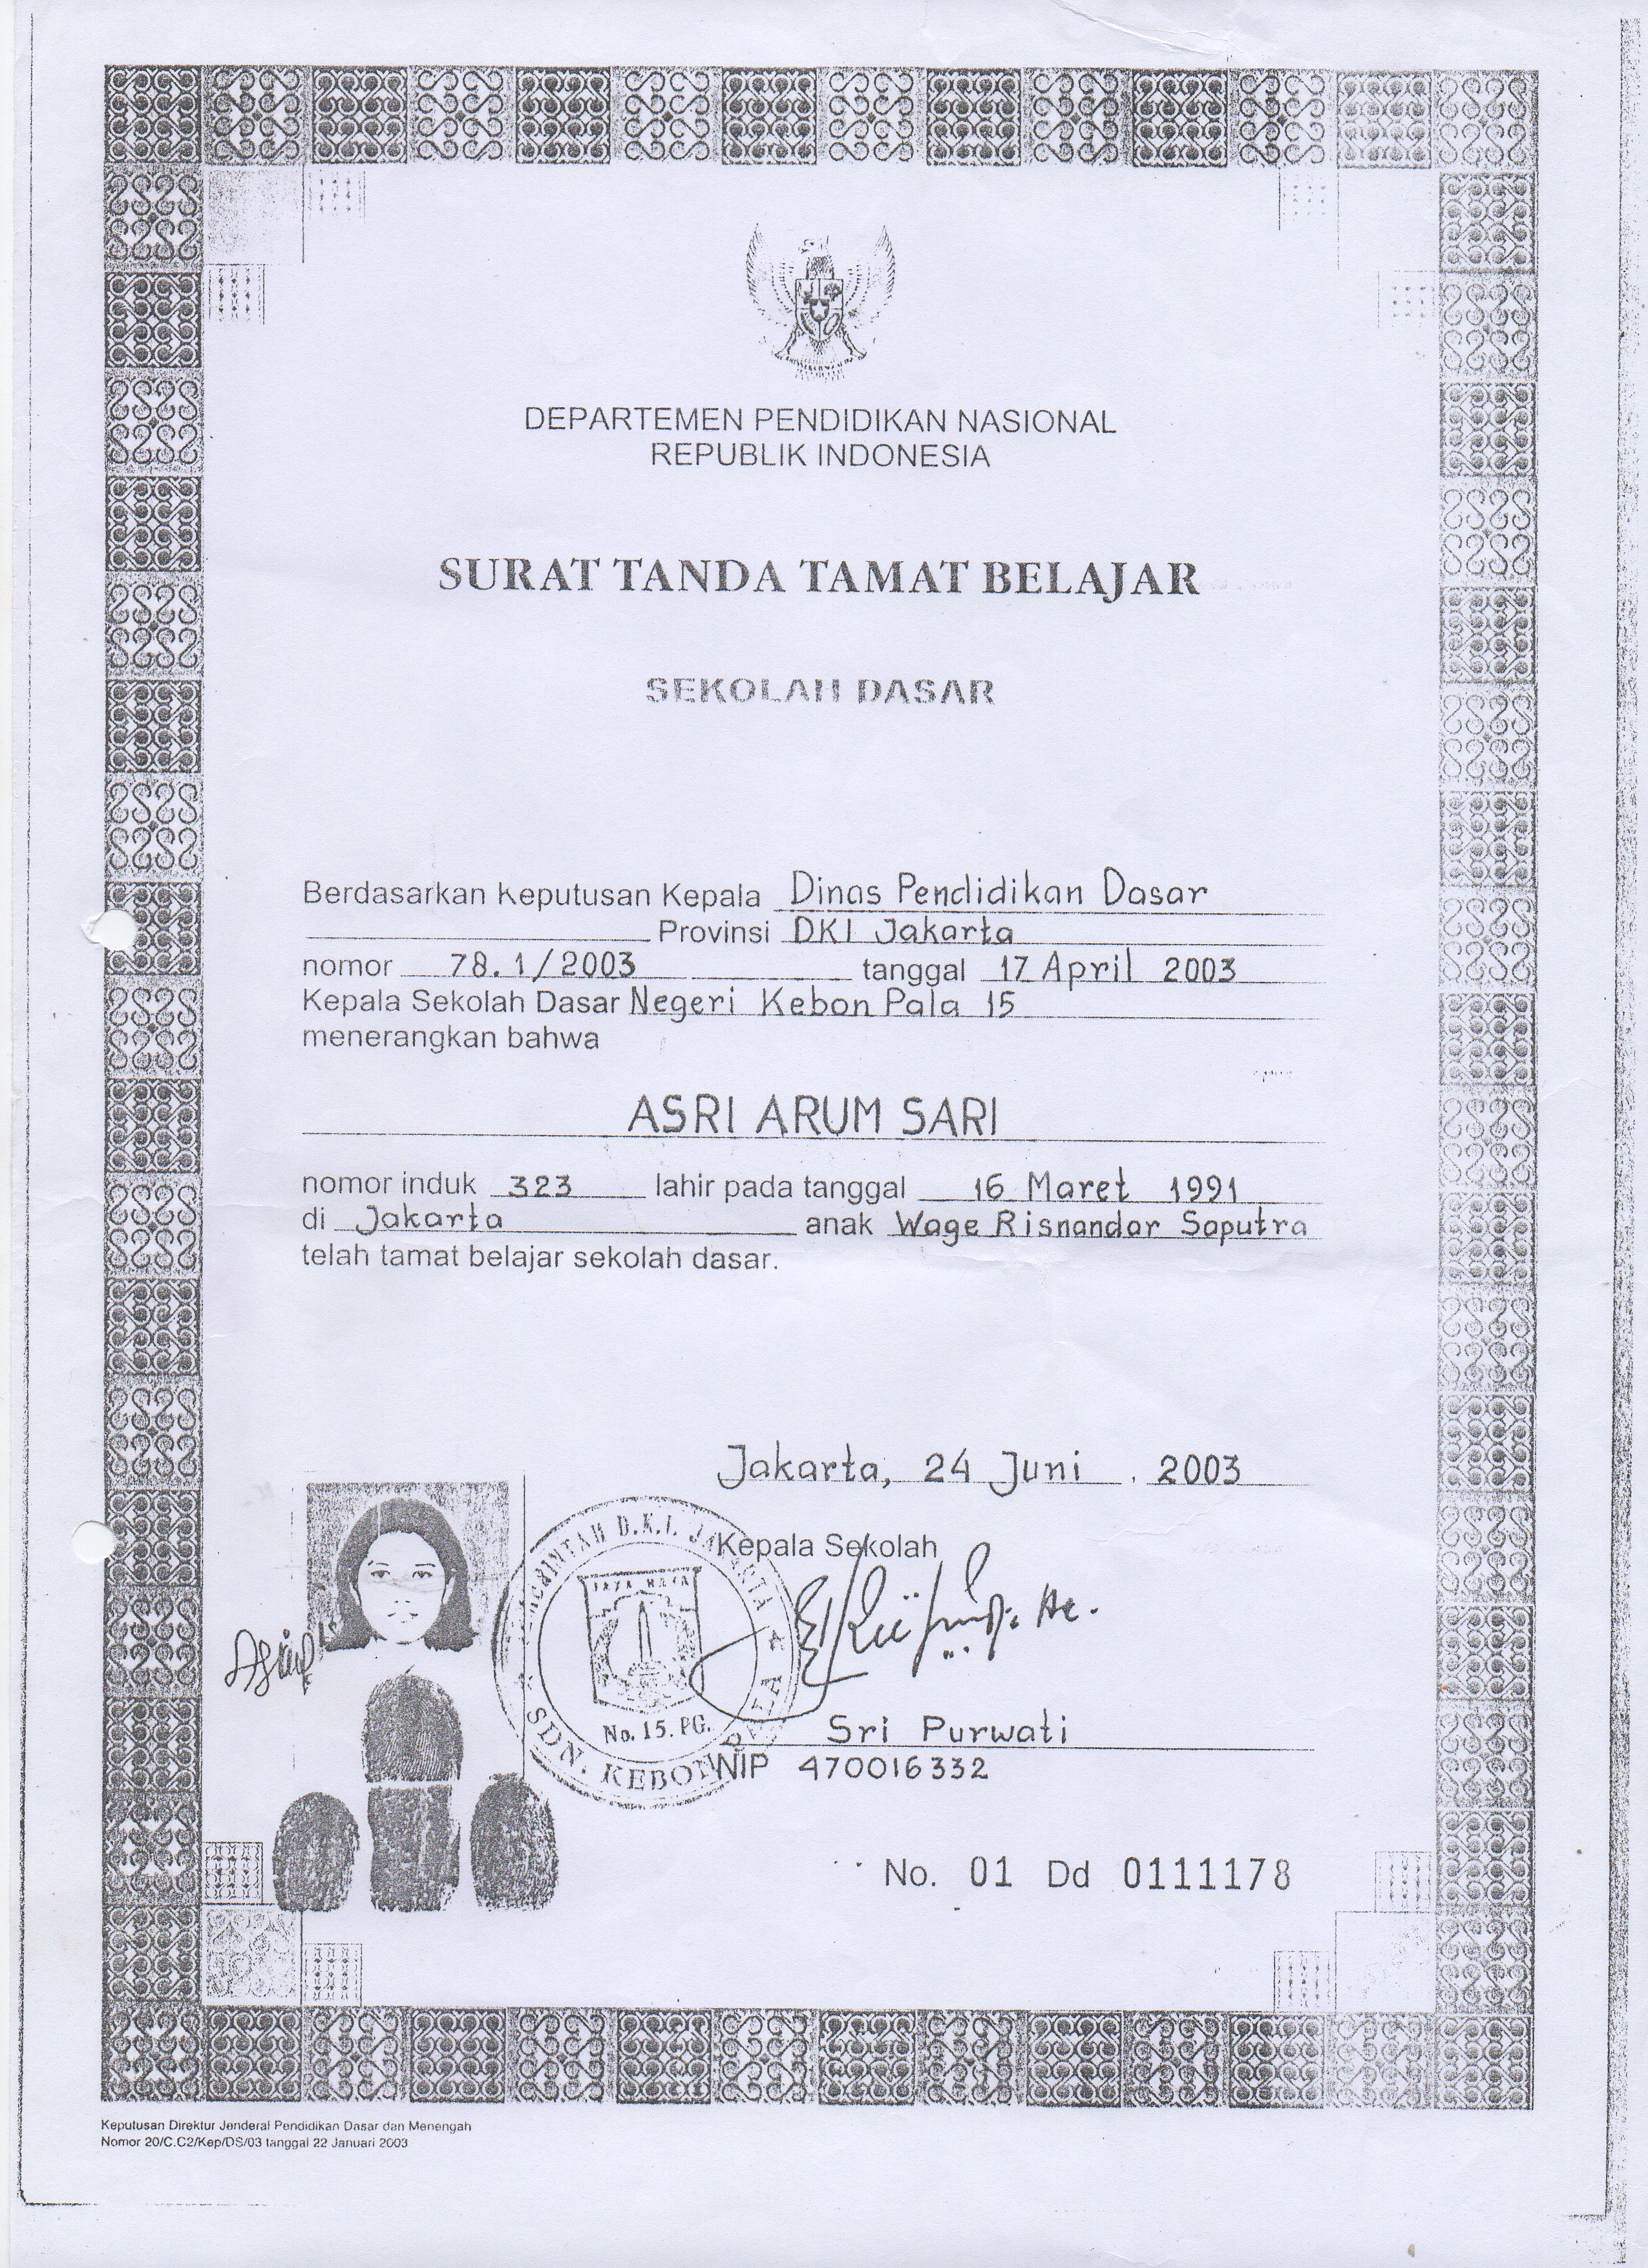 DEPARTEMEN PENDIDIKAN NASIONAL
REPUBLIK INDONESIA
SURAT TANDA TAMAT BELAJAR
SEKOLAH DASAR
Berdasarkan Keputusan Kepala Dinas Pendidikan Dasar
Provinsi DKI Jakarta
nomor 78.1/2003 tanggal 17 April 2003
Kepala Sekolah Dasar Negeri Kebon Pala 15
menerangkan bahwa
ASRI ARUM SARI
nomor induk 323 lahir pada tanggal 16 Maret 1991
di Jakarta anak Wage Risnandar Saputra
telah tamat belajar sekolah dasar.
Jakarta, 24 Juni 2003
Kepala Sekolah
PEMERINTAH D.K.I. JAKARTA
JAYA RAYA
No. 15. PG.
SDN. KEBON PALA
Sri Purwati
NIP 470016332
No. 01 Dd 0111178
Keputusan Direktur Jenderal Pendidikan Dasar dan Menengah
Nomor 20/C.C2/Kep/DS/03 tanggal 22 Januari 2003